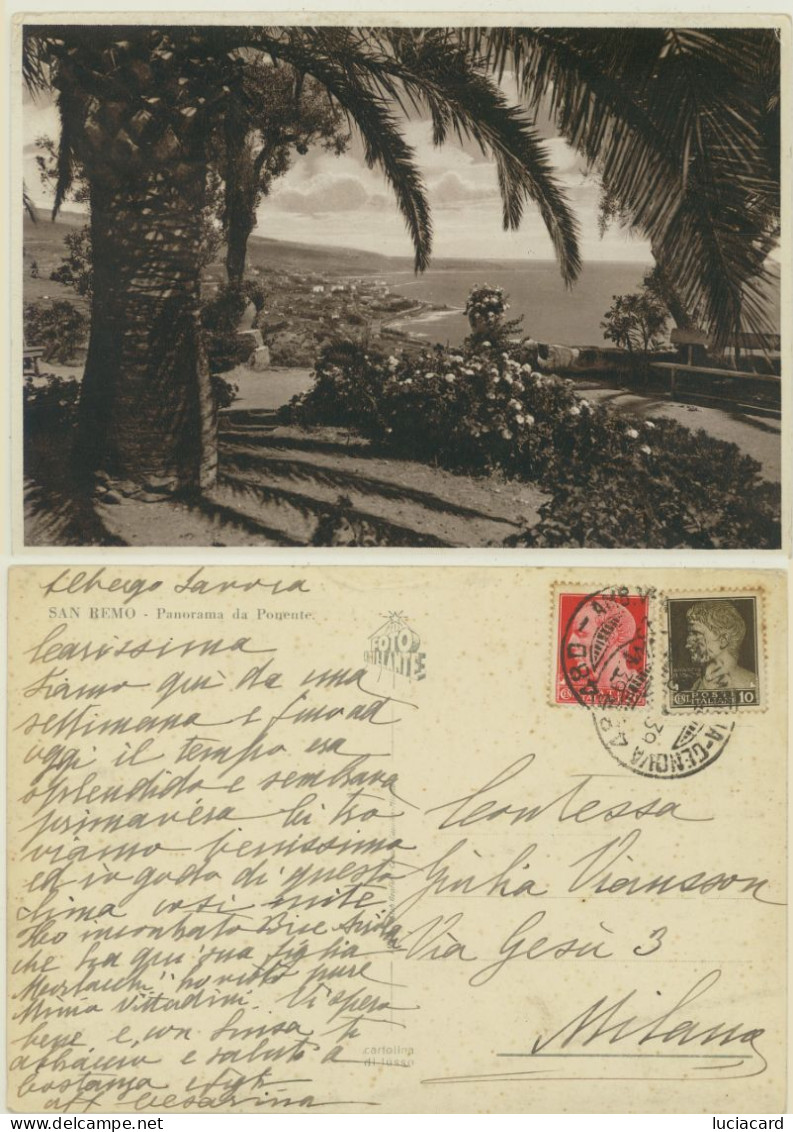 Albergo Savoia
SAN REMO - Panorama da Ponente.
FOTO
BRILLANTE
Carissima
siamo qui da una
settimana e fino ad
oggi il tempo era
splendido e sembrava
primavera. Ci tro
viamo benissimo
ed io godo di questo
clima così mite
Ho incontrato Bice
che ha qui sua figlia
ho visto pure
Mima Vittadini. Vi spero
bene e con Luisa ti
abbraccio e saluto a
Costanza
aff Cesarina
cartolina
di lusso
POSTE
ITALIANE
10
AMB. V
GENOVA 48
39
Contessa
Giulia Viansson
Via Gesù 3
Milano
luciacard